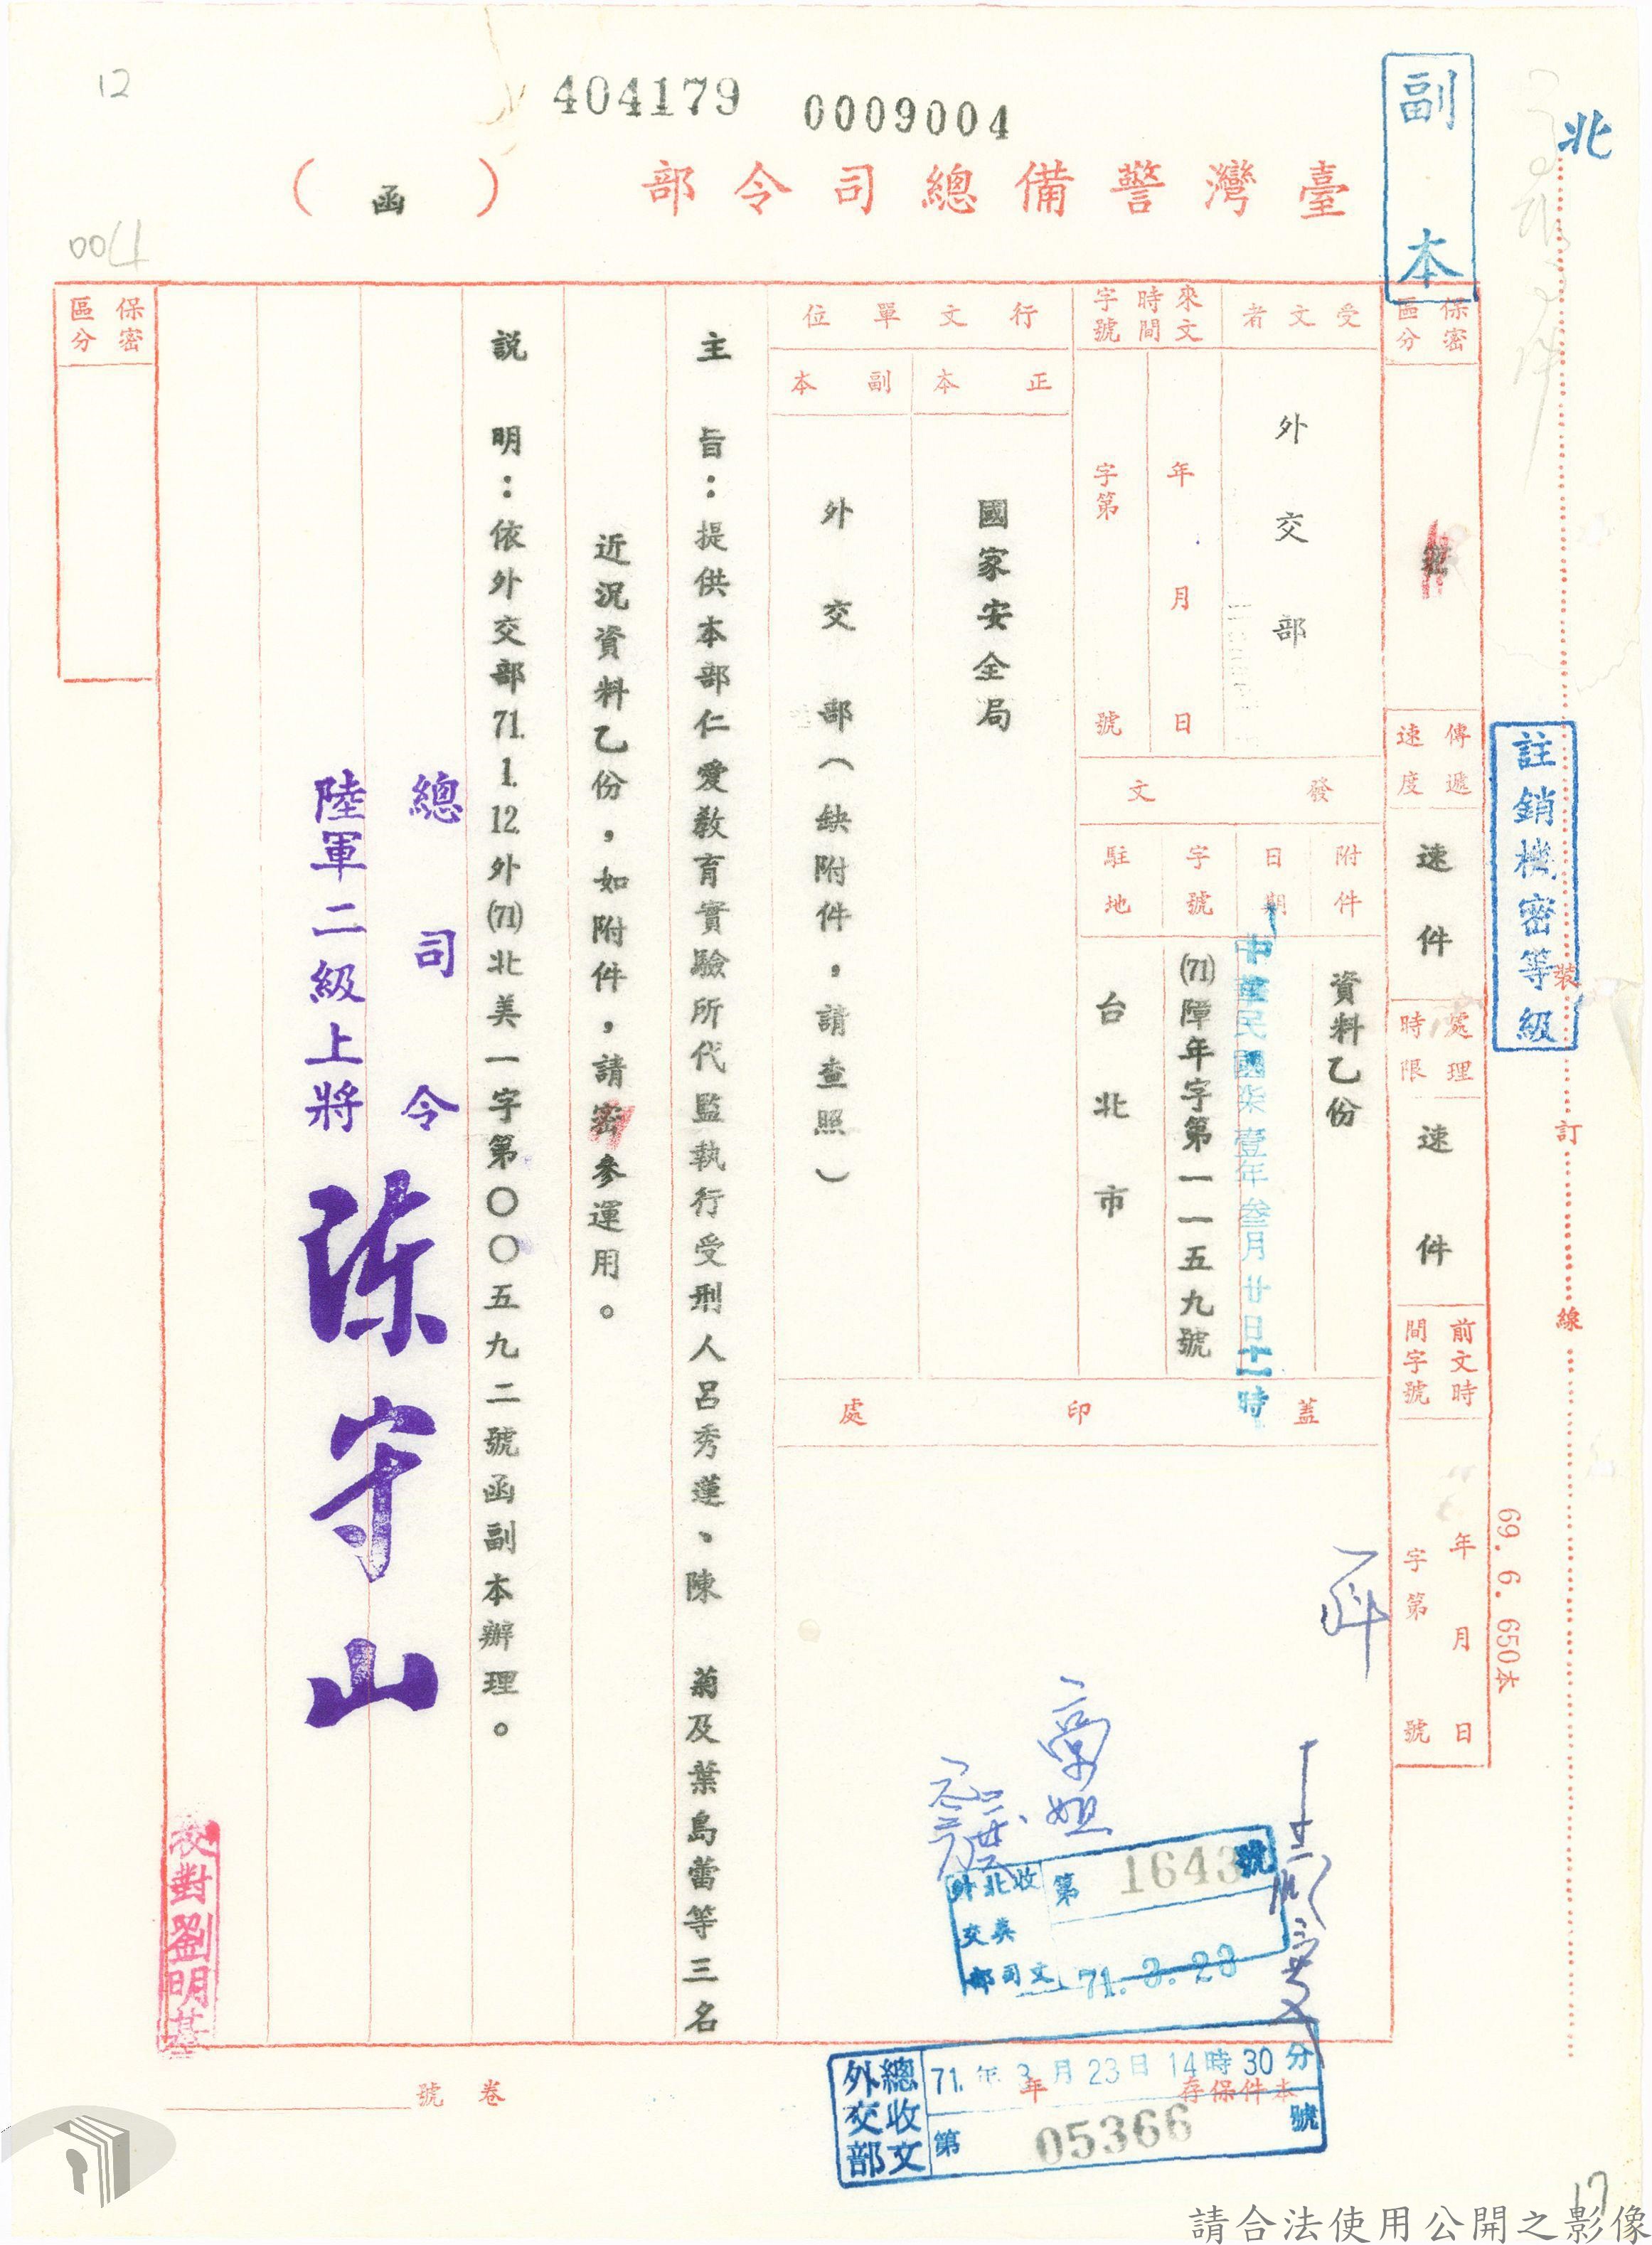 12
404179
0009004
副本
北
臺灣警備總司令部(函)
保密區分
密
傳遞速度
速件
處理時限
速件
前文時間字號
年月日
字第號
註銷機密等級
裝訂線
69. 6. 650本
受文者
外交部
來文時間字號
年月日
字第號
發文
附件
資料乙份
日期
中華民國柒壹年叁月廿日十一時
字號
(71)障年字第一一五九號
駐地
台北市
行文單位
正本
國家安全局
副本
外交部(缺附件,請查照)
蓋印處
主旨:提供本部仁愛教育實驗所代監執行受刑人呂秀蓮、陳 菊及葉島蕾等三名
近況資料乙份,如附件,請密參運用。
說明:依外交部71.1.12.外(71)北美一字第〇〇五九二號函副本辦理。
總司令
陸軍二級上將 陳守山
保密區分
校對劉明基
外交部北美司收文
第1643號
71. 3. 23
外交部總收文
71.年3月23日14時30分
第05366號
本件保存年
卷號
17
請合法使用公開之影像